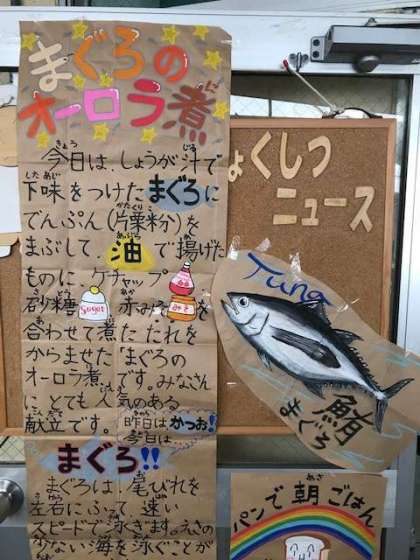 まぐろの
オーロラ煮
に
きょう
しる
今日は、しょうが汁で
したあじ
下味をつけたまぐろに
かたくりこ
でんぷん(片栗粉)を
あぶら
あ
まぶして、油で揚げた
ものに、ケチャップ
さとう
あか
砂糖 Sugar 赤みそ みそ を
合わせて煮たたれを
からませた まぐろの
オーロラ煮です。みなさん
に とても人気のある
こんだて
献立です。昨日はかつお!
今日は…
まぐろ!!
まぐろは、尾びれを
左右にふって 速い
スピードで泳ぎます。えさの
少ない海を泳ぐことが
ょくしつ
ニュース
Tuna
鮪
まぐろ
あさ
パンで朝ごはん